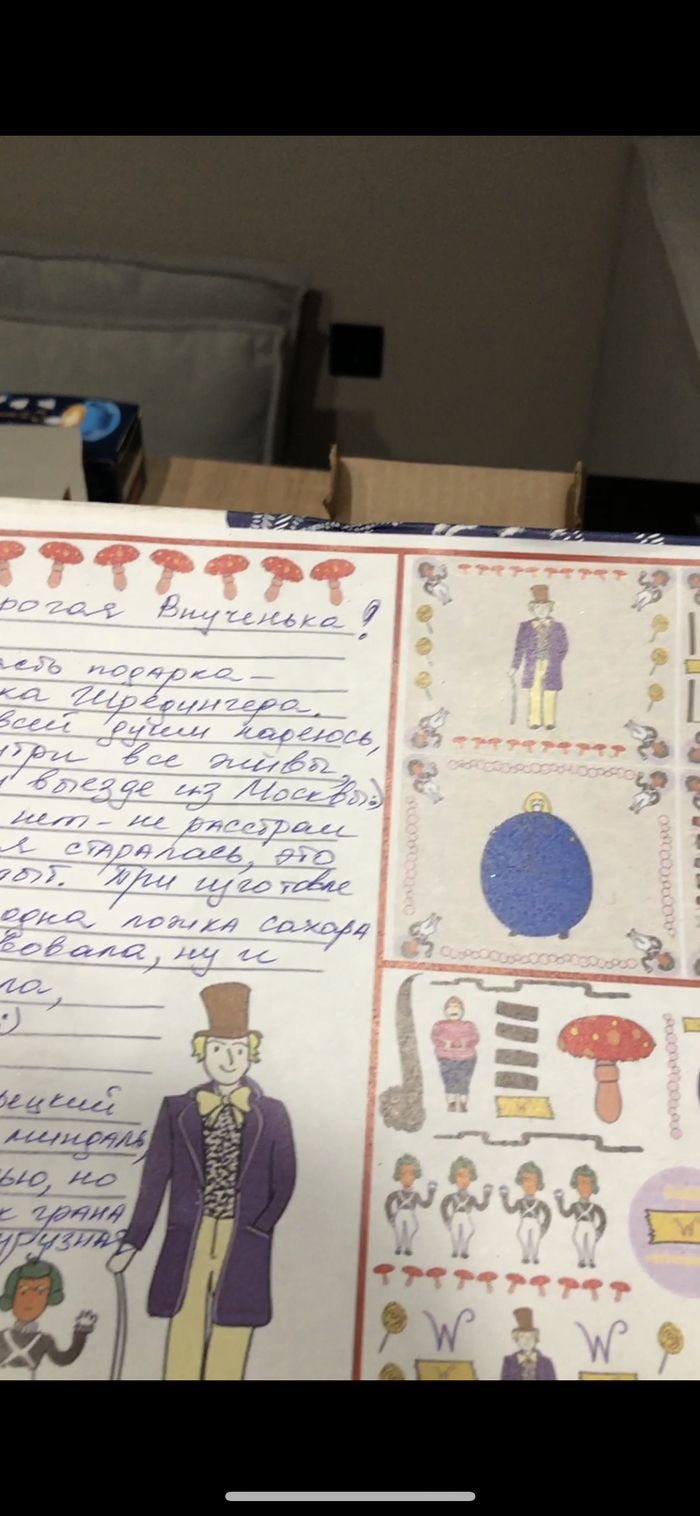 рогая Внученька!
асть подарка —
ка Шрёдингера.
всей души надеюсь,
утри все живы
и выезде из Москвы:)
нет - не расстраи
я старалась, это
дыт. При изготовле
одна ложка сахара
вовала, ну и
ла,
:)
рецкий
миндаль,
ью, но
к грана
урузная
W
W
W
W
W